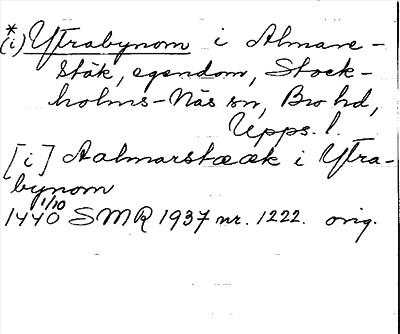 *
(i) Ytrabynom i Almare-
Stäk, egendom, Stock-
holms-Näs sn, Bro hd,
Upps. l.
[i] Aalmarstææk i Ytra-
bynom
1440 1/10 SMR 1937 nr. 1222. orig.